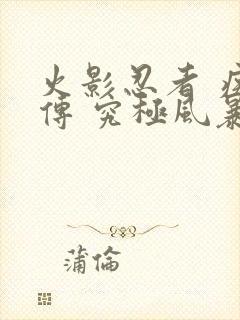 火影忍者 疾
傳 究極風暴
蒲倫